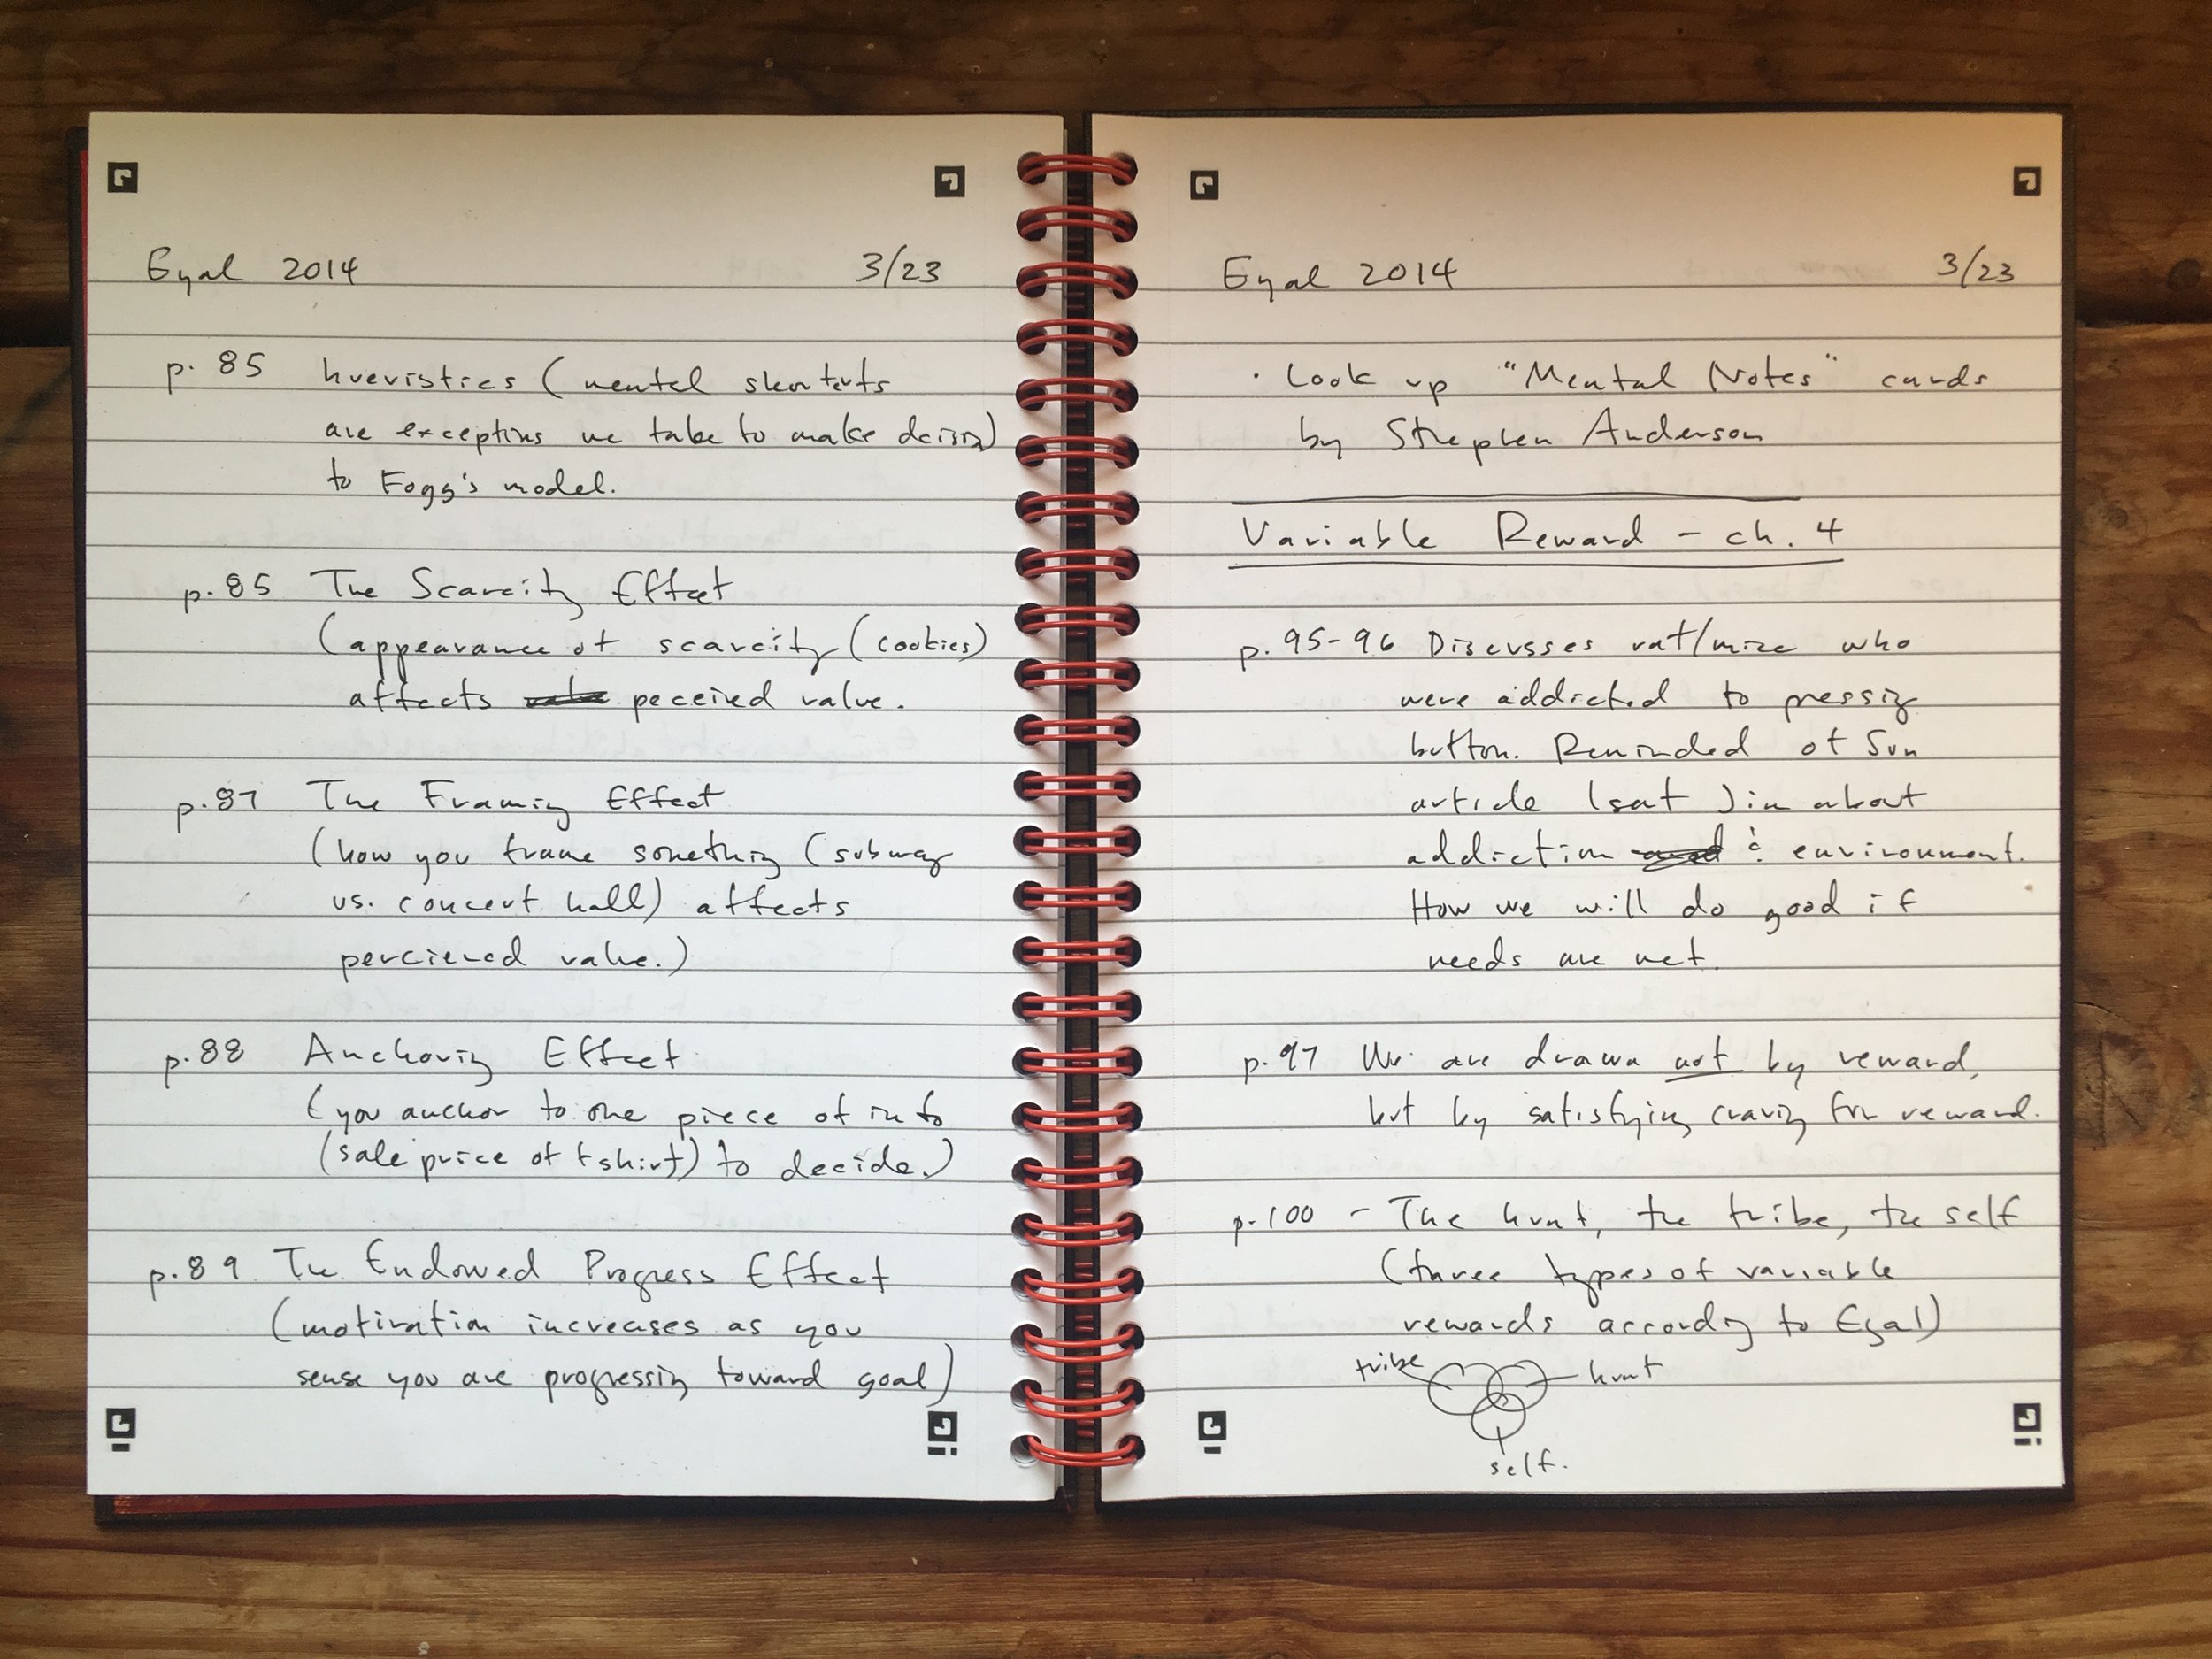 Eyal 2014 3/23
p. 85 hueristics (mental shortcuts
are exceptions we take to make decision)
to Fogg's model.
p. 85 The Scarcity Effect
(appearance of scarcity (cookies)
affects peceived value.
p. 87 The Framing Effect
(how you frame something (subway
vs. concert hall) affects
percieved value.)
p. 88 Anchoring Effect
(you anchor to one piece of info
(sale price of tshirt) to decide.)
p. 89 The Endowed Progress Effect
(motivation increases as you
sense you are progressing toward goal)
Eyal 2014 3/23
· Look up "Mental Notes" cards
by Stephen Anderson
Variable Reward - ch. 4
p. 95-96 Discusses rat/mice who
were addicted to pressing
button. Reminded of Sun
article (sat ) in about
addiction & environment.
How we will do good if
needs are met.
p. 97 We are drawn not by reward,
but by satisfying craving for reward.
p. 100 - The hunt, the tribe, the self
(three types of variable
rewards according to Eyal)
tribe hunt
self.